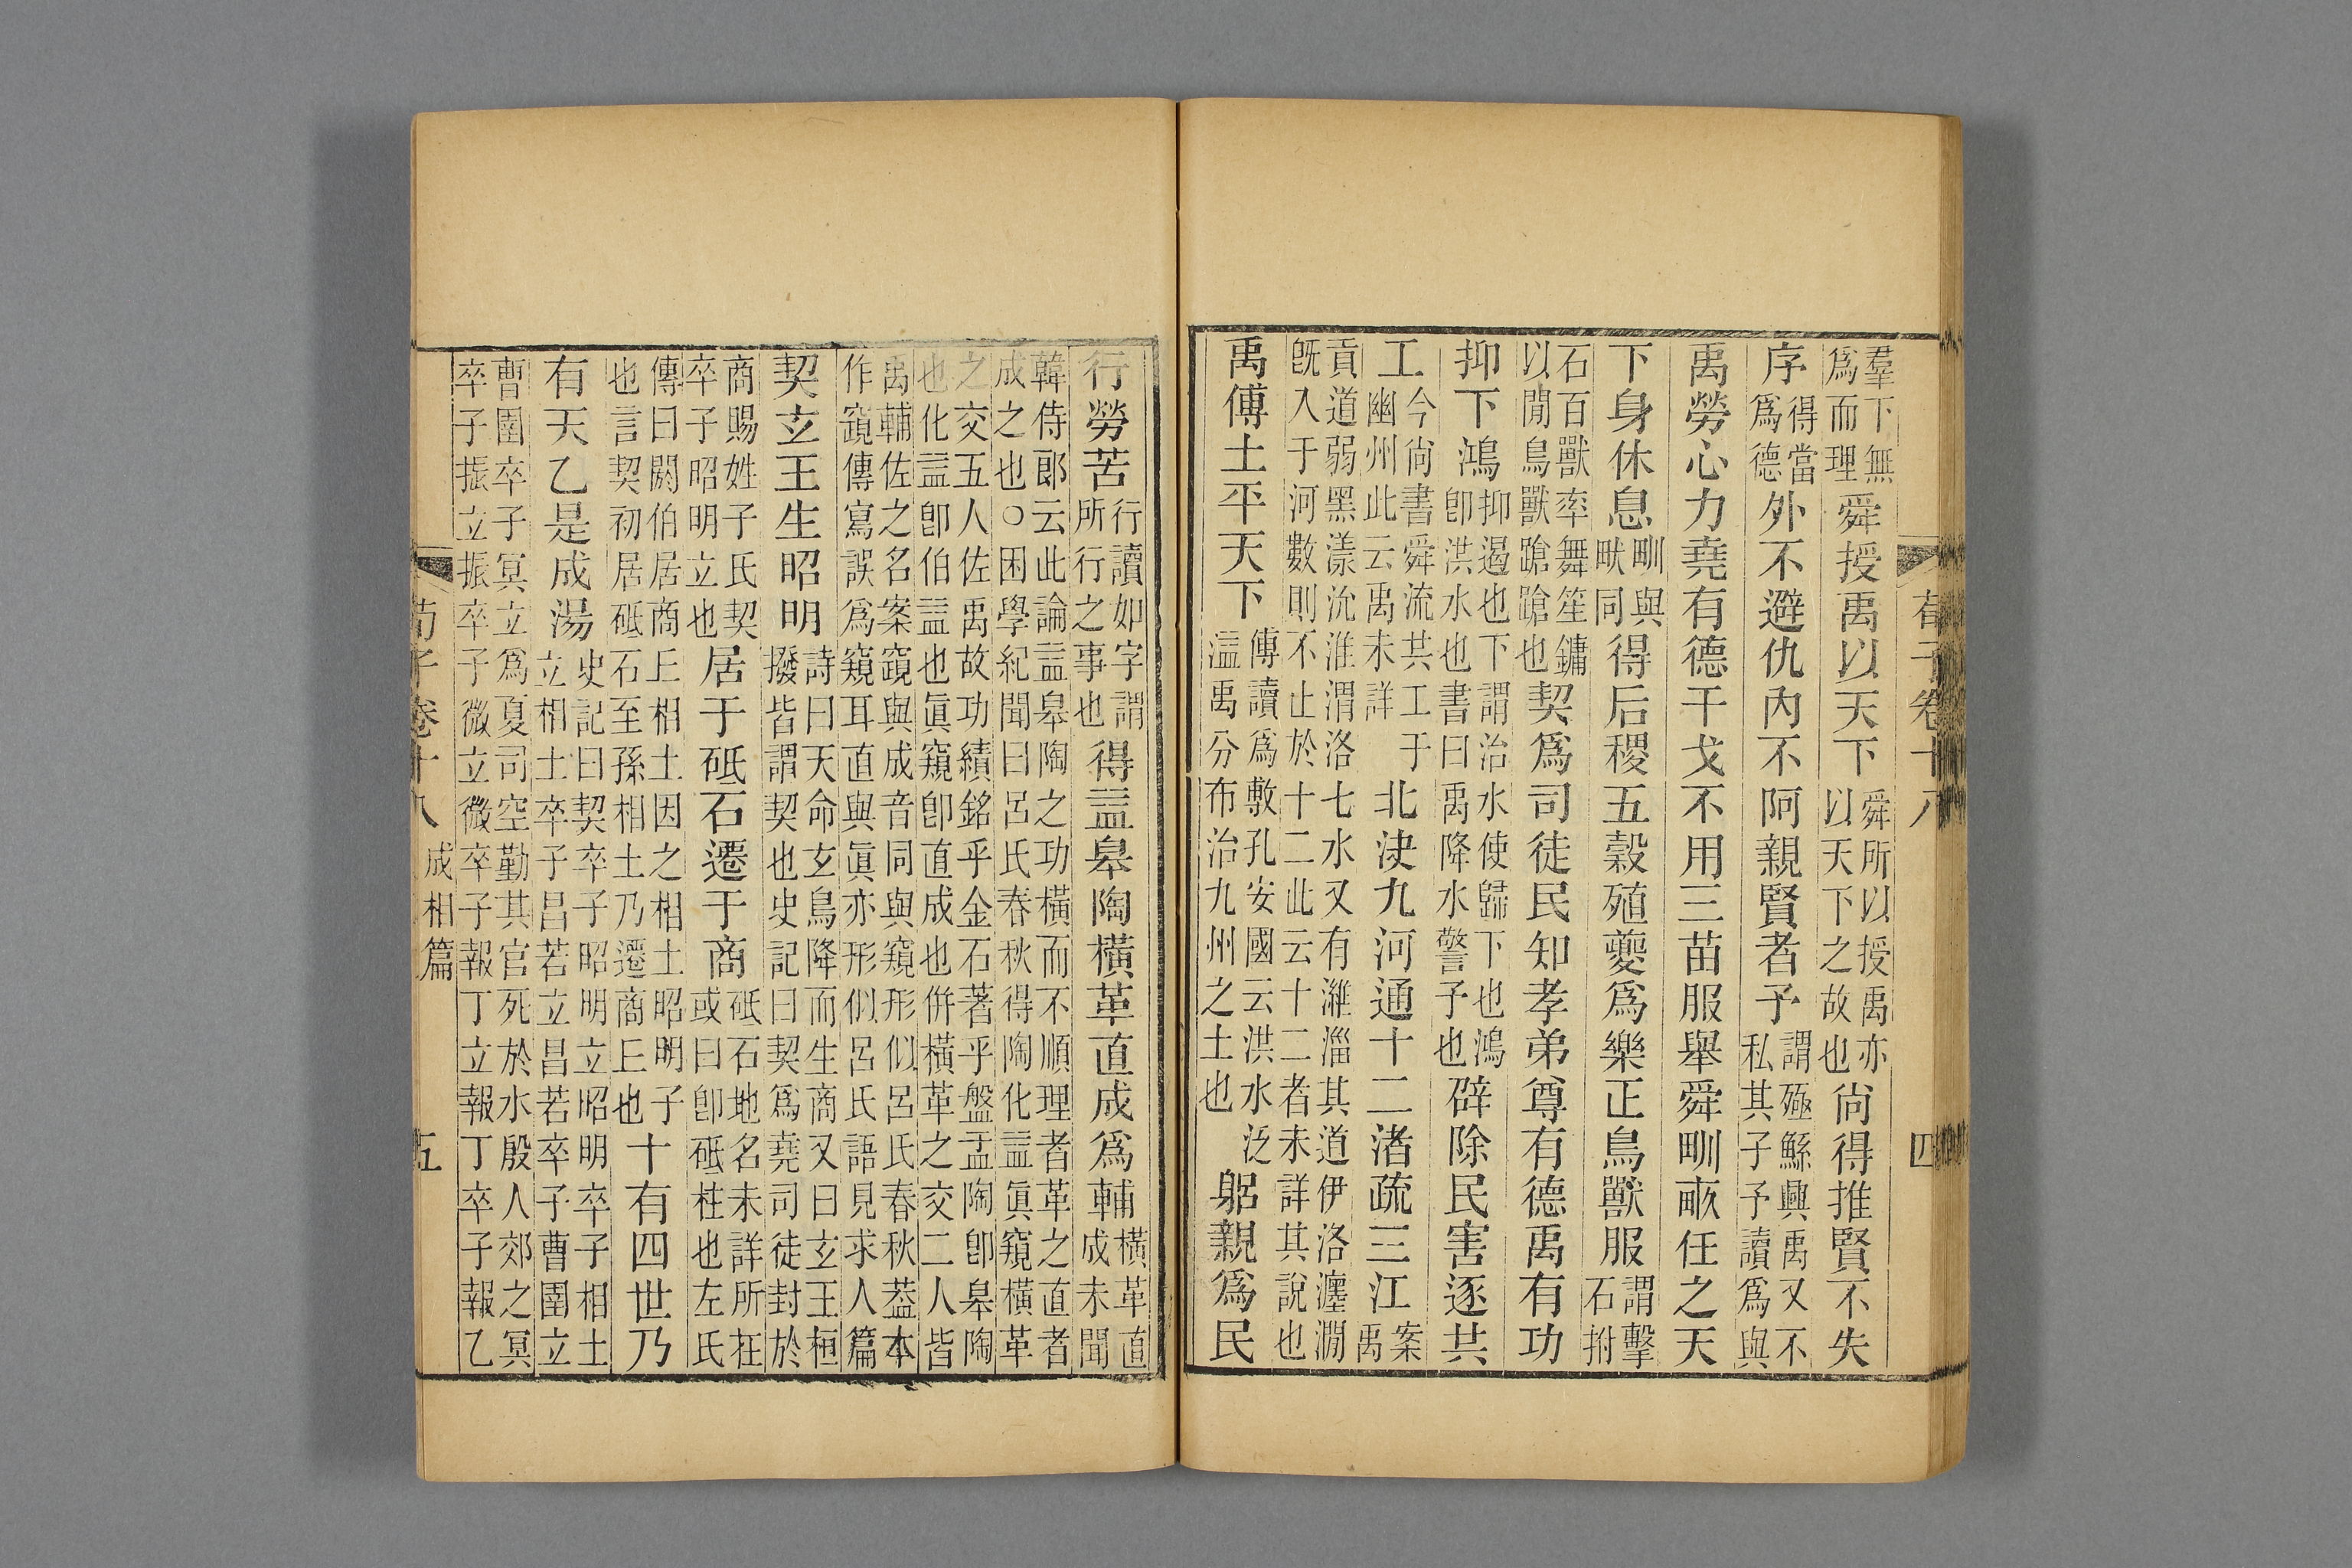 荀子卷十八 四
羣下無
爲而理
舜授禹以天下
舜所以授禹亦
以天下之故也
尙得推賢不失
序
得當
爲德
外不避仇內不阿親賢者予
謂殛鯀興禹又不
私其子予讀爲與
禹勞心力堯有德干戈不用三苗服舉舜甽畝任之天
下身休息
甽與
畎同
得后稷五穀殖夔爲樂正鳥獸服
謂擊
石拊
石百獸率舞笙鏞
以閒鳥獸蹌蹌也
契爲司徒民知孝弟尊有德禹有功
抑下鴻
抑遏也下謂治水使歸下也鴻
卽洪水也書曰禹降水警子也
辟除民害逐共
工
今尙書舜流共工于
幽州此云禹未詳
北決九河通十二渚疏三江
案
禹
貢道弱黑漾沇淮渭洛七水又有濰淄其道伊洛瀍澗
旣入于河數則不止於十二此云十二者未詳其說也
禹傅土平天下
傅讀爲敷孔安國云洪水泛
溢禹分布治九州之土也
躬親爲民
行勞苦
行讀如字謂
所行之事也
得益皋陶橫革直成爲輔
橫革直
成未聞
韓侍郎云此論益皋陶之功橫而不順理者革之直者
成之也○困學紀聞曰呂氏春秋得陶化益眞窺橫革
之交五人佐禹故功績銘乎金石著乎盤盂陶卽皋陶
也化益卽伯益也眞窺卽直成也倂橫革之交二人皆
禹輔佐之名案竀與成音同與窺形似呂氏春秋葢本
作竀傳寫誤爲窺耳直與眞亦形似呂氏語見求人篇
契玄王生昭明
詩曰天命玄鳥降而生商又曰玄王桓
撥皆謂契也史記曰契爲堯司徒封於
商賜姓子氏契
卒子昭明立也
居于砥石遷于商
砥石地名未詳所在
或曰卽砥柱也左氏
傳曰閼伯居商丘相土因之相土昭明子
也言契初居砥石至孫相土乃遷商丘也
十有四世乃
有天乙是成湯
史記曰契卒子昭明立昭明卒子相土
立相土卒子昌若立昌若卒子曹圉立
曹圉卒子冥立爲夏司空勤其官死於水殷人郊之冥
卒子振立振卒子微立微卒子報丁立報丁卒子報乙
荀子卷十八 成相篇 五